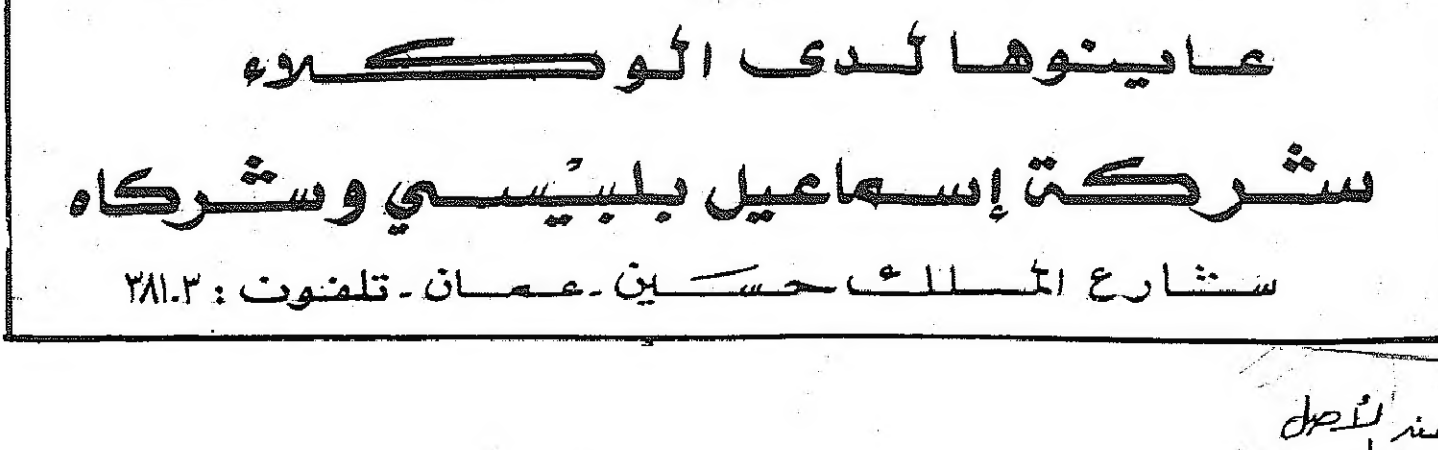 عاينوها لدى الوكلاء
شركة إسماعيل بلبيسي وشركاه
شارع الملك حسين - عمان - تلفون : ٣٨١٠٣
الأصل